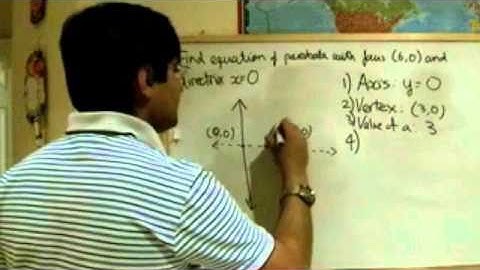 Find equation of parabola with focus (6,0) and
directrix x=0
1) Axis: y=0
2) Vertex: (3,0)
3) Value of a: 3
4)
(0,0)
,0)